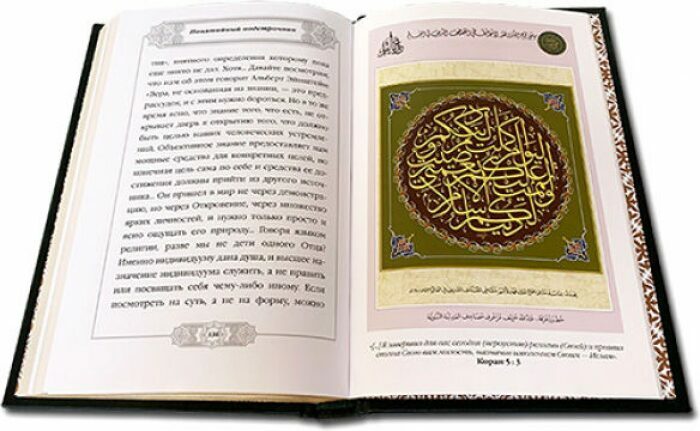 Понятийный подстрочник
тия», внятного определения которому пока
еще никто не дал. Хотя... Давайте посмотрим,
что нам об этом говорит Альберт Эйнштейн:
«Вера, не основанная на знании, — это пред-
рассудок, и с этим нужно бороться. Но в то же
время ясно, что знание того, что есть, не от-
крывает дверь к открытию того, что должно
быть целью наших человеческих устремле-
ний. Объективное знание предоставляет нам
мощные средства для конкретных целей, но
конечная цель сама по себе и средства ее до-
стижения должны прийти из другого источ-
ника... Они пришел в мир не через демонстра-
цию, но через Откровение, через множество
ярких личностей, и нужно только просто и
ясно ощущать его природу... Говоря языком
религии, разве мы не дети одного Отца?
Именно индивидууму дана душа, и высшее на-
значение индивидуума служить, а не править
или посвящать себя чему-либо иному. Если
посмотреть на суть, а не на форму, можно
اليوم أكملت لكم دينكم وأتممت عليكم نعمتي ورضيت لكم الإسلام دينا
«[...] Я завершил для вас сегодня (ниспослание) религии (Своей) и проявил
сполна Свою вам милость, назначив исполнением Своим — Ислам».
Коран 5 : 3